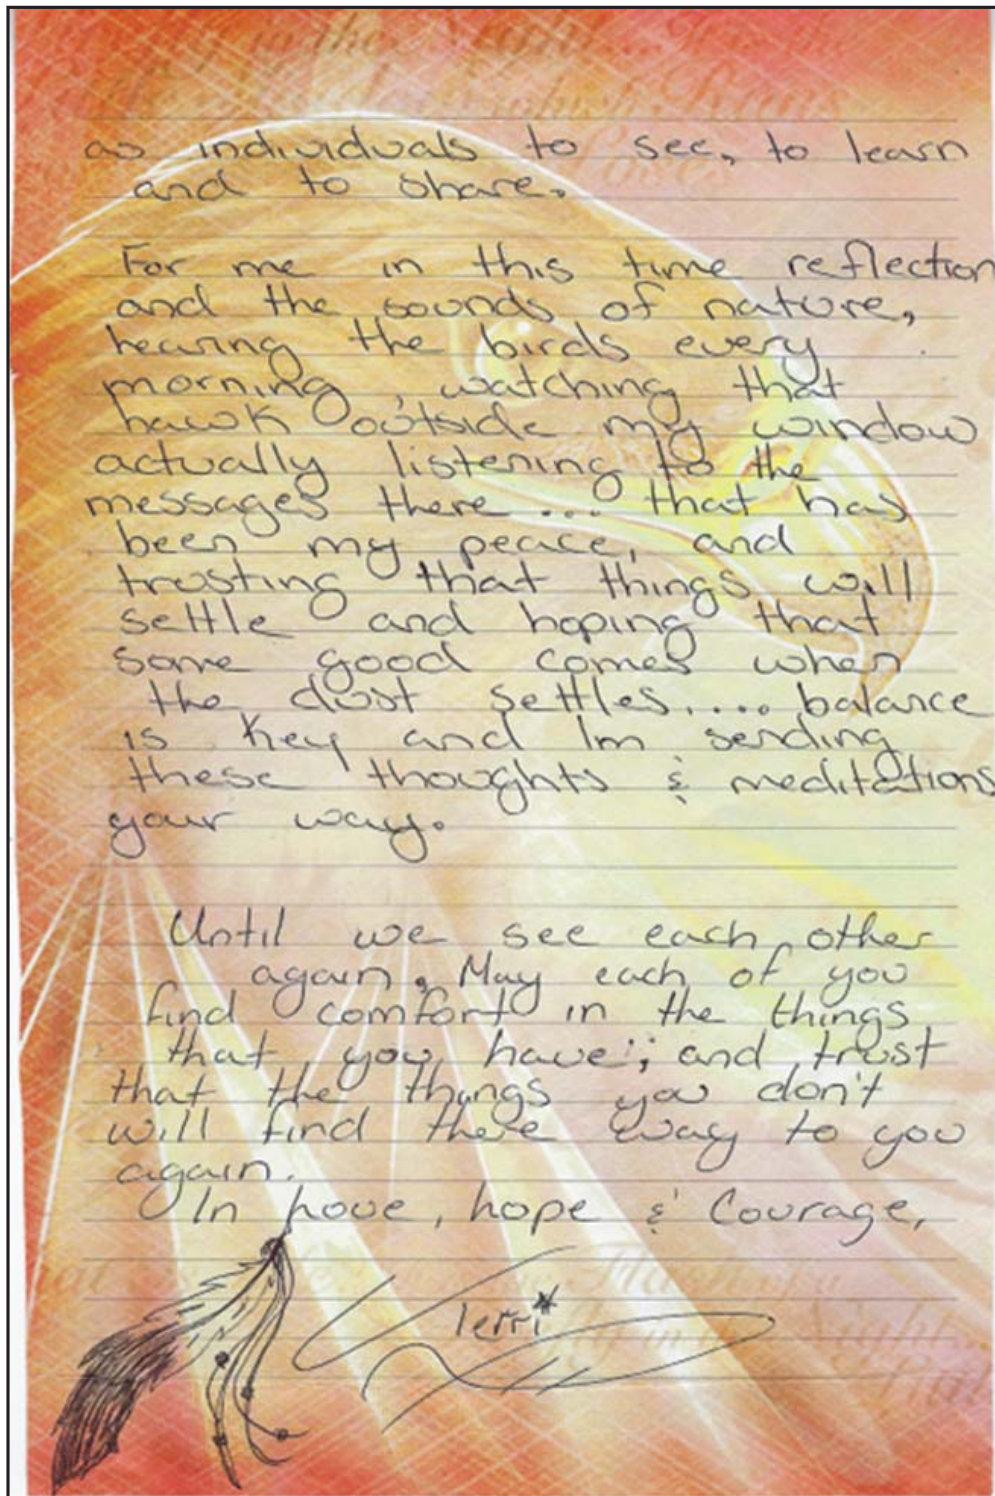 as individuals to see, to learn
and to share.
For me in this time reflection
and the sounds of nature,
hearing the birds every
morning, watching that
hawk outside my window
actually listening to the
messages there ... that has
been my peace, and
trusting that things will
settle and hoping that
some good comes when
the dust settles.... balance
is key and Im sending
these thoughts & meditations
your way.
Until we see each other
again. May each of you
find comfort in the things
that you have; and trust
that the things you don't
will find there way to you
again.
In love, hope & Courage,
Terri